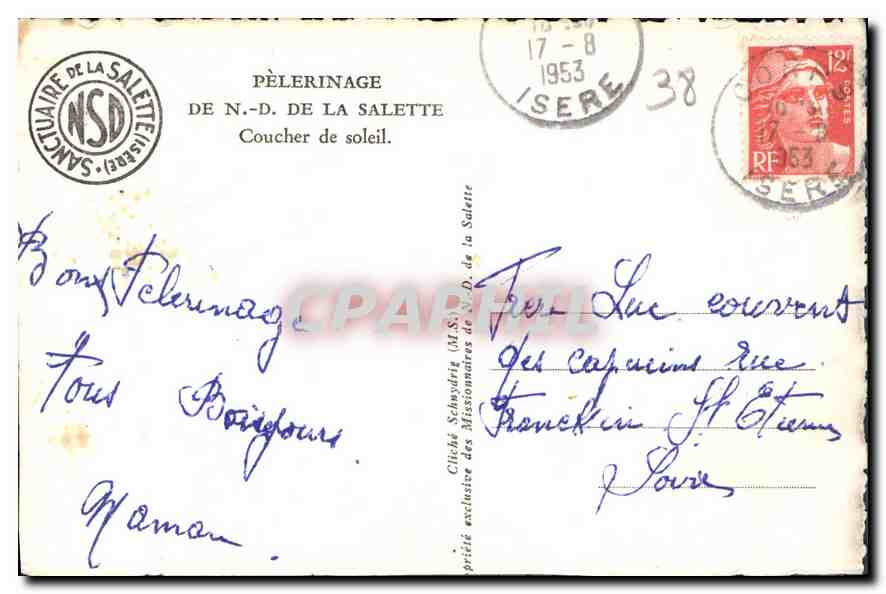 SANCTUAIRE DE LA SALETTE (ISÈRE)
NSD
PÈLERINAGE
DE N.-D. DE LA SALETTE
Coucher de soleil.
17 - 8
1953
ISERE
38
12F
POSTES
RF
17 8
1953
ISERE
Bons Pelerinage
Tous Bonjours
Maman
Cliché Schnydrig (M.S.)
priété exclusive des Missionnaires de N.-D. de la Salette
CPAPHIL
Frere Luc couvent
des capucins rue
Francklin St Etienne
Loire